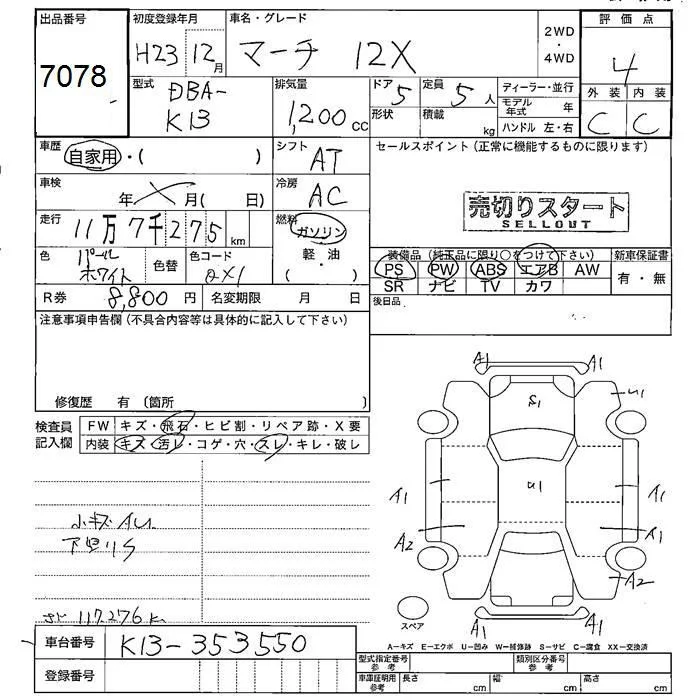 出品番号
7078
初度登録年月
H23 12月
車名・グレード
マーチ 12X
2WD
・
4WD
評価点
4
外装 内装
C C
型式
DBA-
K13
排気量
1,200cc
ドア
5
定員
5人
形状
積載
kg
ディーラー・並行
モデル年式 年
ハンドル 左・右
車歴
自家用・( )
シフト
AT
セールスポイント (正常に機能するものに限ります)
売切りスタート
SELLOUT
車検
年 月( 日)
冷房
AC
走行
11万7千275km
燃料
ガソリン
軽・油
( )
色
パール
ホワイト
色替
色コード
QX1
装備品 (純正品に限り○をつけて下さい)
PS PW ABS エアB AW
SR ナビ TV カワ
新車保証書
有・無
後日品
R券
8,800円
名変期限 月 日
注意事項申告欄 (不具合内容等は具体的に記入して下さい)
修復歴 有 〔箇所
検査員
記入欄
FW キズ・飛石・ヒビ割・リペア跡・X要
内装 キズ・汚レ・コゲ・穴・スレ・キレ・破レ
小キズAU
下回リS
117,276k
A1 A1
S1
U1
U1
A1 A1
A1
A2
A2
A1 A1
スペア
A-キズ E-エクボ U-凹み W-補修跡 S-サビ C-腐食 XX-交換済
車台番号
K13-353550
登録番号
型式指定番号
参考
類別区分番号
参考
車庫証明用
参考
長さ cm
幅 cm
高さ cm